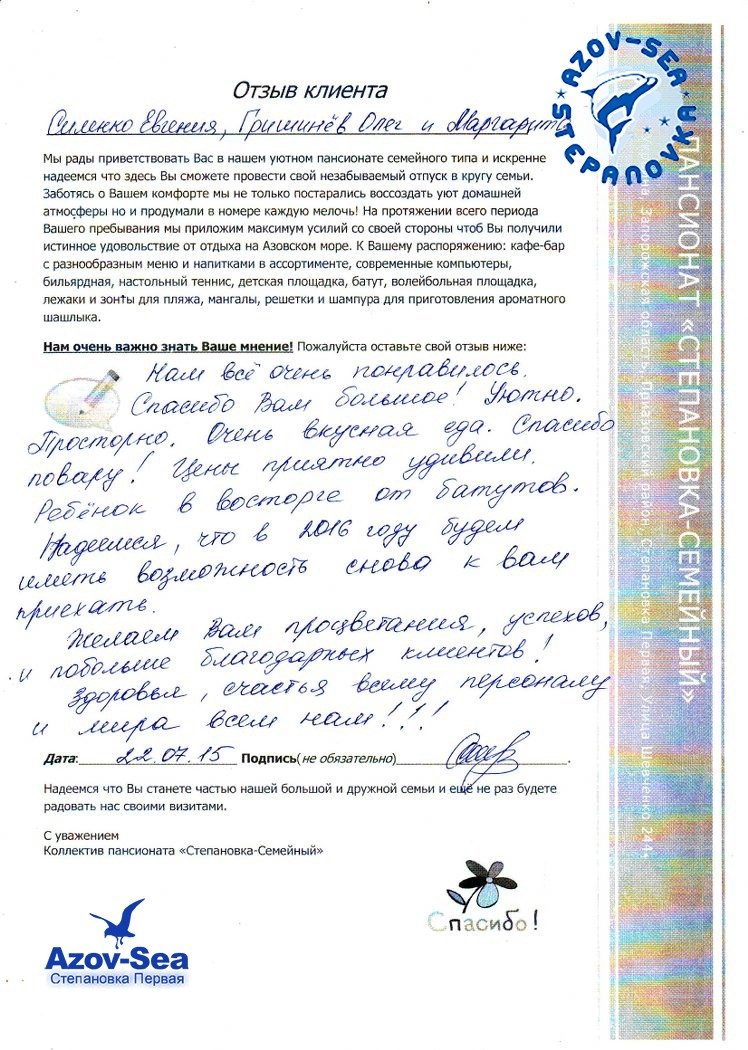 AZOV-SEA
STEPANOVKA
Отзыв клиента
Силенко Евгения, Гришинёв Олег и Маргарита
Мы рады приветствовать Вас в нашем уютном пансионате семейного типа и искренне
надеемся что здесь Вы сможете провести свой незабываемый отпуск в кругу семьи.
Заботясь о Вашем комфорте мы не только постарались воссоздать уют домашней
атмосферы но и продумали в номере каждую мелочь! На протяжении всего периода
Вашего пребывания мы приложим максимум усилий со своей стороны чтоб Вы получили
истинное удовольствие от отдыха на Азовском море. К Вашему распоряжению: кафе-бар
с разнообразным меню и напитками в ассортименте, современные компьютеры,
бильярдная, настольный теннис, детская площадка, батут, волейбольная площадка,
лежаки и зонты для пляжа, мангалы, решетки и шампура для приготовления ароматного
шашлыка.
Нам очень важно знать Ваше мнение! Пожалуйста оставьте свой отзыв ниже:
Нам всё очень понравилось.
Спасибо Вам большое! Уютно.
Просторно. Очень вкусная еда. Спасибо
повару! Цены приятно удивили.
Ребёнок в восторге от батутов.
Надеемся, что в 2016 году будем
иметь возможность снова к вам
приехать.
Желаем Вам процветания, успехов,
и побольше благодарных клиентов!
Здоровья, счастья всему персоналу
и мира всем нам!!!
Дата: 22.07.15 Подпись(не обязательно)
Надеемся что Вы станете частью нашей большой и дружной семьи и ещё не раз будете
радовать нас своими визитами.
С уважением
Коллектив пансионата «Степановка-Семейный»
Спасибо!
Azov-Sea
Степановка Первая
ПАНСИОНАТ «СТЕПАНОВКА-СЕМЕЙНЫЙ»
Запорожская область, Приазовский район, Степановка Первая, Улица Шевченко 244